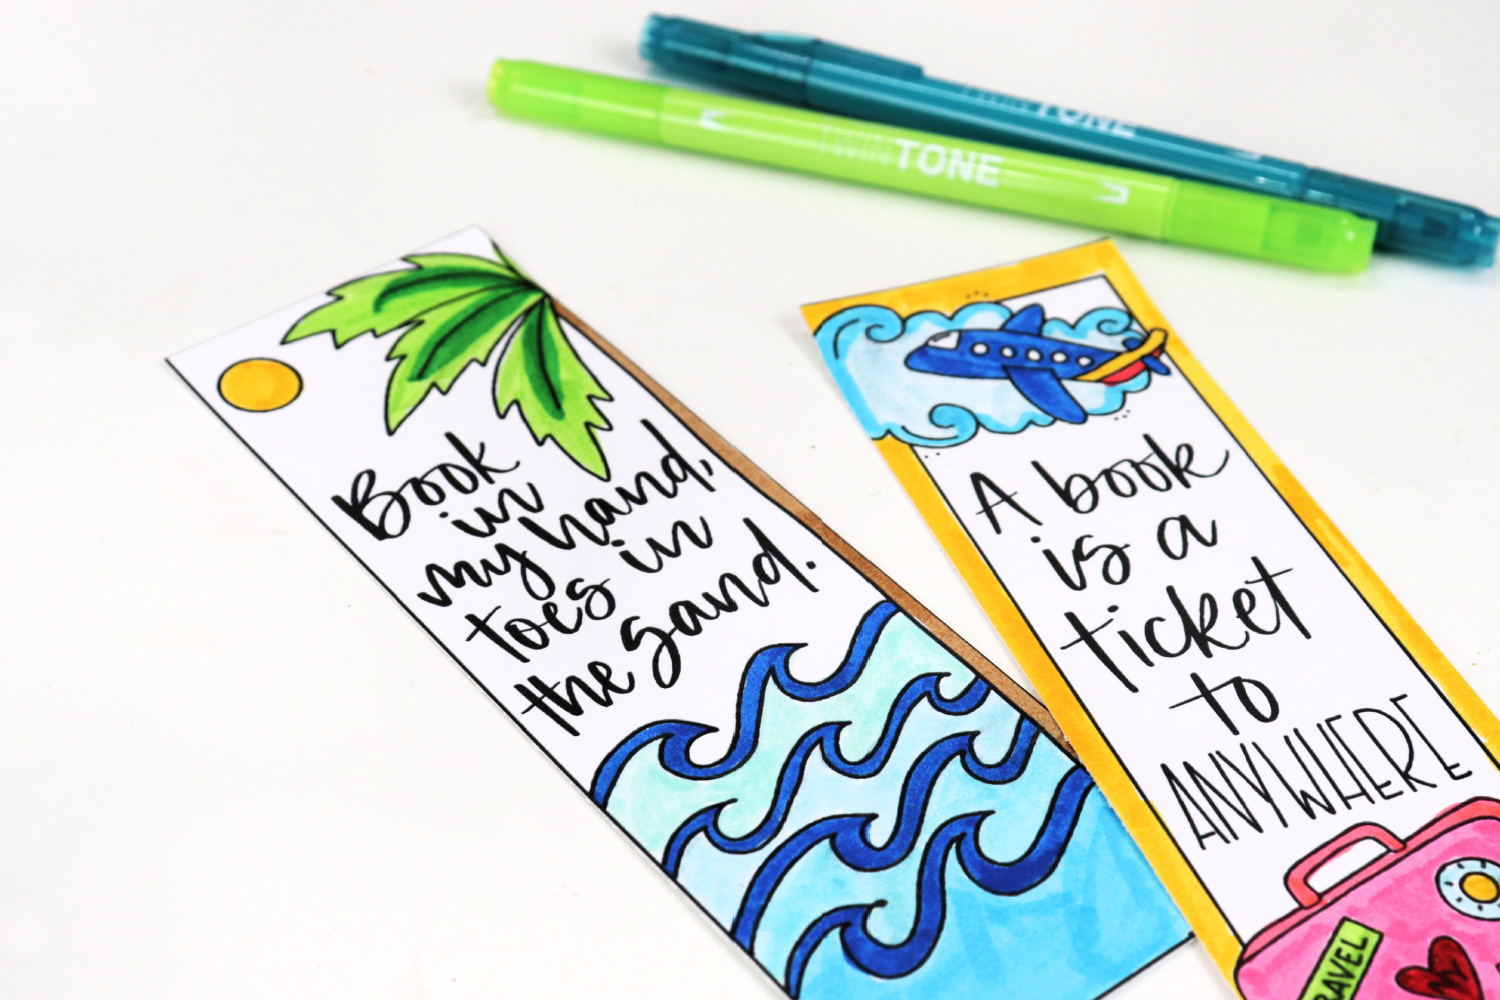 TWINTONE
TWINTONE
Book
in
my hand,
toes in
the sand.
A book
is a
ticket
to
ANYWHERE
RAVEL